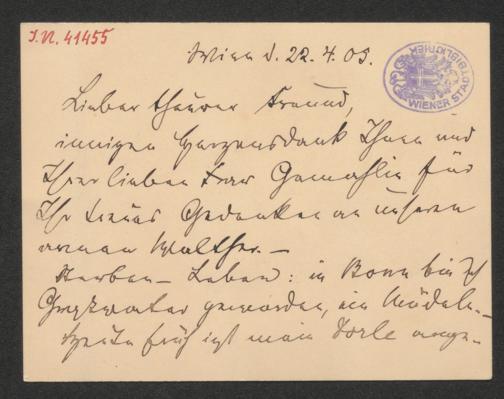 I.N. 41455
Wien d. 22.4.03.
WIENER STADTBIBLIOTHEK
Lieber theurer Freund,
innigen Herzensdank Ihnen und
Ihrer lieben Frau Gemahlin für
Ihr treues Gedenken an unseren
armen Walther. –
Sterben – Leben: in Bonn bin ich
Großvater geworden, ein Mädele. –
Heute früh ist mein Dorle ange-